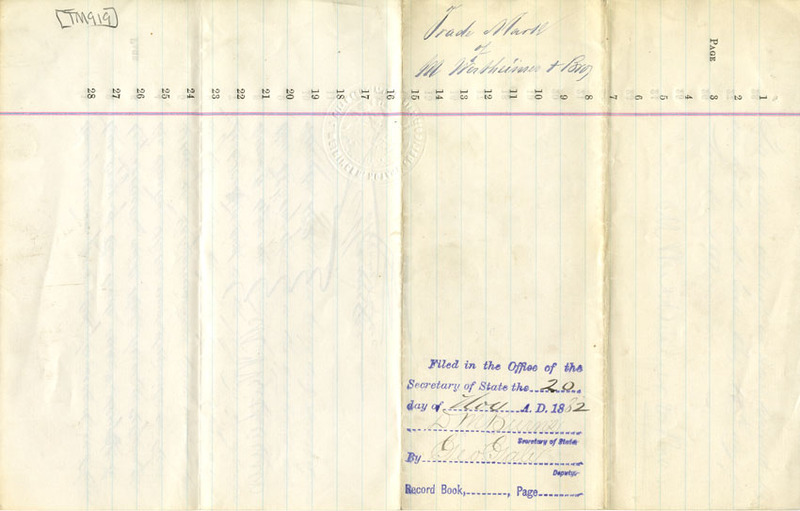 [TM919]
Trade Mark
of
M Wertheimer & Bro
PAGE
1
2
3
4
5
6
7
8
9
10
11
12
13
14
15
16
17
18
19
20
21
22
23
24
25
26
27
28
Filed in the Office of the
Secretary of State the 20
day of Nov A. D. 1882
Secretary of State
By
Deputy.
Record Book, , Page